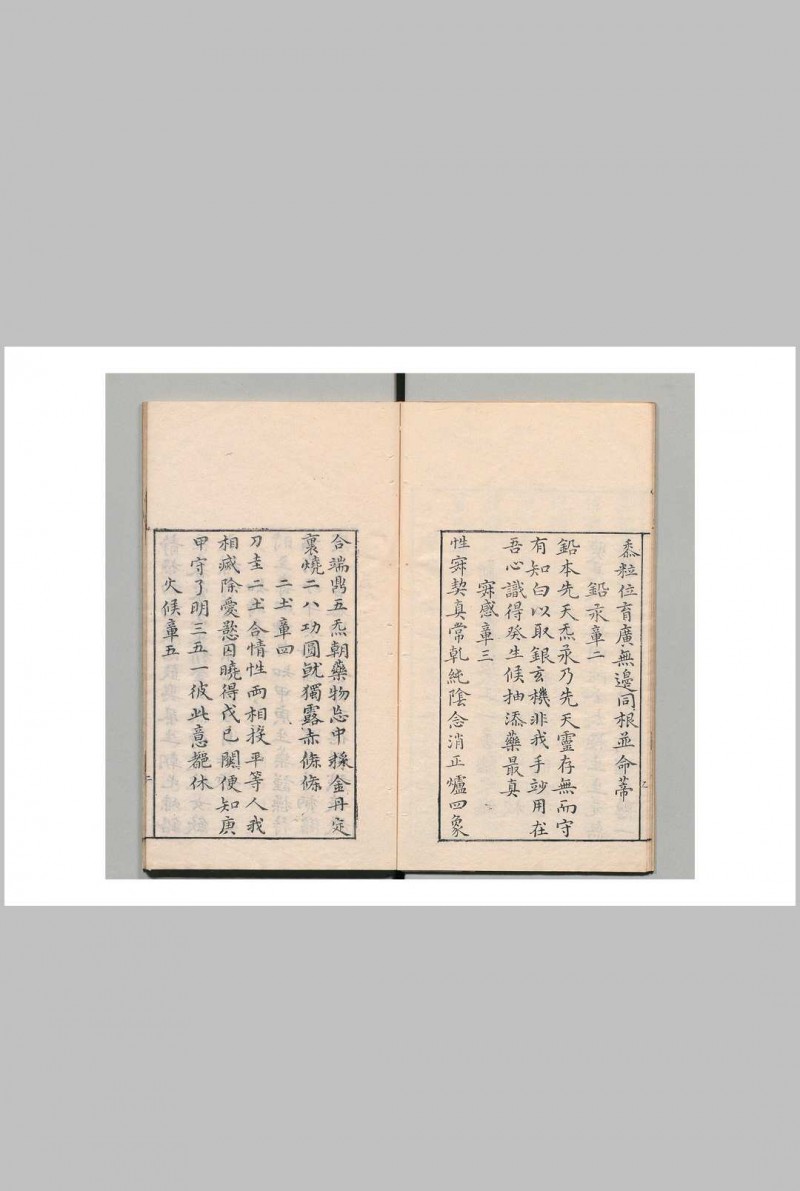 黍粒位育廣無邊同根並命蒂
鉛汞章二
鉛本先天炁汞乃先天靈存無而守
有知白以取銀玄機非我手玅用在
吾心識得癸生候抽添藥最真
寂感章三
性寂契真常乾純陰念消正爐四象
合端鼎五炁朝藥物忘中採金丹定
裏燒二八功圓就獨露赤條條
二土章四
刀圭二土合情性兩相投平等人我
相滅除愛慾因曉得戊己關便知庚
甲守了明三五一彼此意罷休
火候章五
二